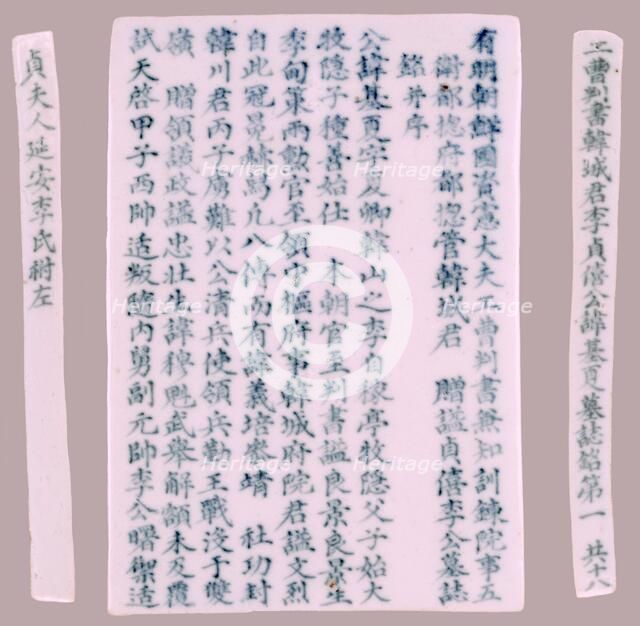 工曹判書韓城君李貞僖公諱基夏墓誌銘第一 共十八
有明朝鮮國資憲大夫工曹判書兼知訓鍊院事五
衛都摠府都摠管韓城君 贈謚貞僖李公墓誌
銘并序
公諱基夏字夏卿韓山之李自稼亭牧隱父子始大
牧隱子種善始仕 本朝官至判書謚良景良景生
季甸策兩勳官至領中樞府事韓城府院君謚文烈
自此冠冕赫舄凡八傳而有諱義培參靖 社功封
韓川君丙子虜難以公清兵使領兵勤王戰沒于雙
嶺 贈領議政謚忠壯生諱穆魁武擧解額未及覆
試天啓甲子西帥适叛適内舅副元帥李公曙禦适
貞夫人延安李氏祔左
Heritage
Heritage
Heritage
Heritage
Heritage
Heritage
Heritage